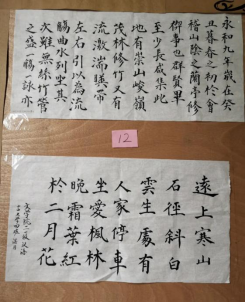 永和九年歲在癸
丑暮春之初於會
稽山陰之蘭亭修
禊事也群賢畢
至少長咸集此
地有崇山峻嶺
茂林修竹又有
流激湍暎帶
左右引以為流
觴曲水列坐其
次雖無絲竹管
之盛一觴一詠亦
12
遠上寒山
石徑斜白
雲生處有
人家停車
坐愛楓林
晚霜葉紅
於二月花